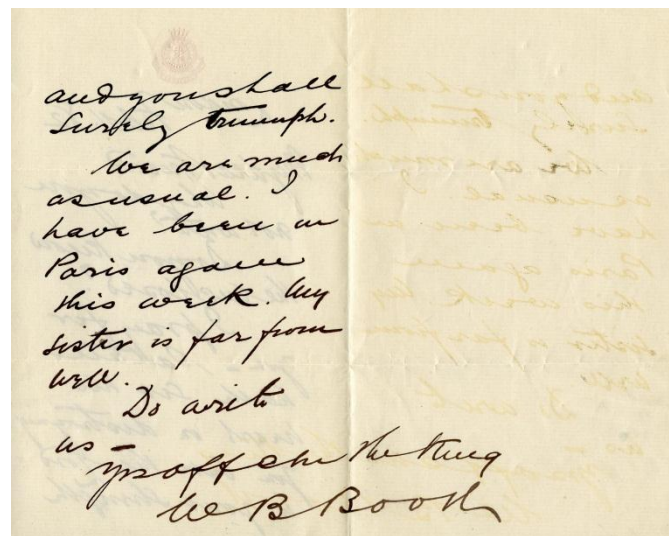 and you shall
Surely triumph.
We are much
as usual. I
have been in
Paris again
this week. My
sister is far from
well.
Do write
us
Yrs affcte in the King
W B Booth